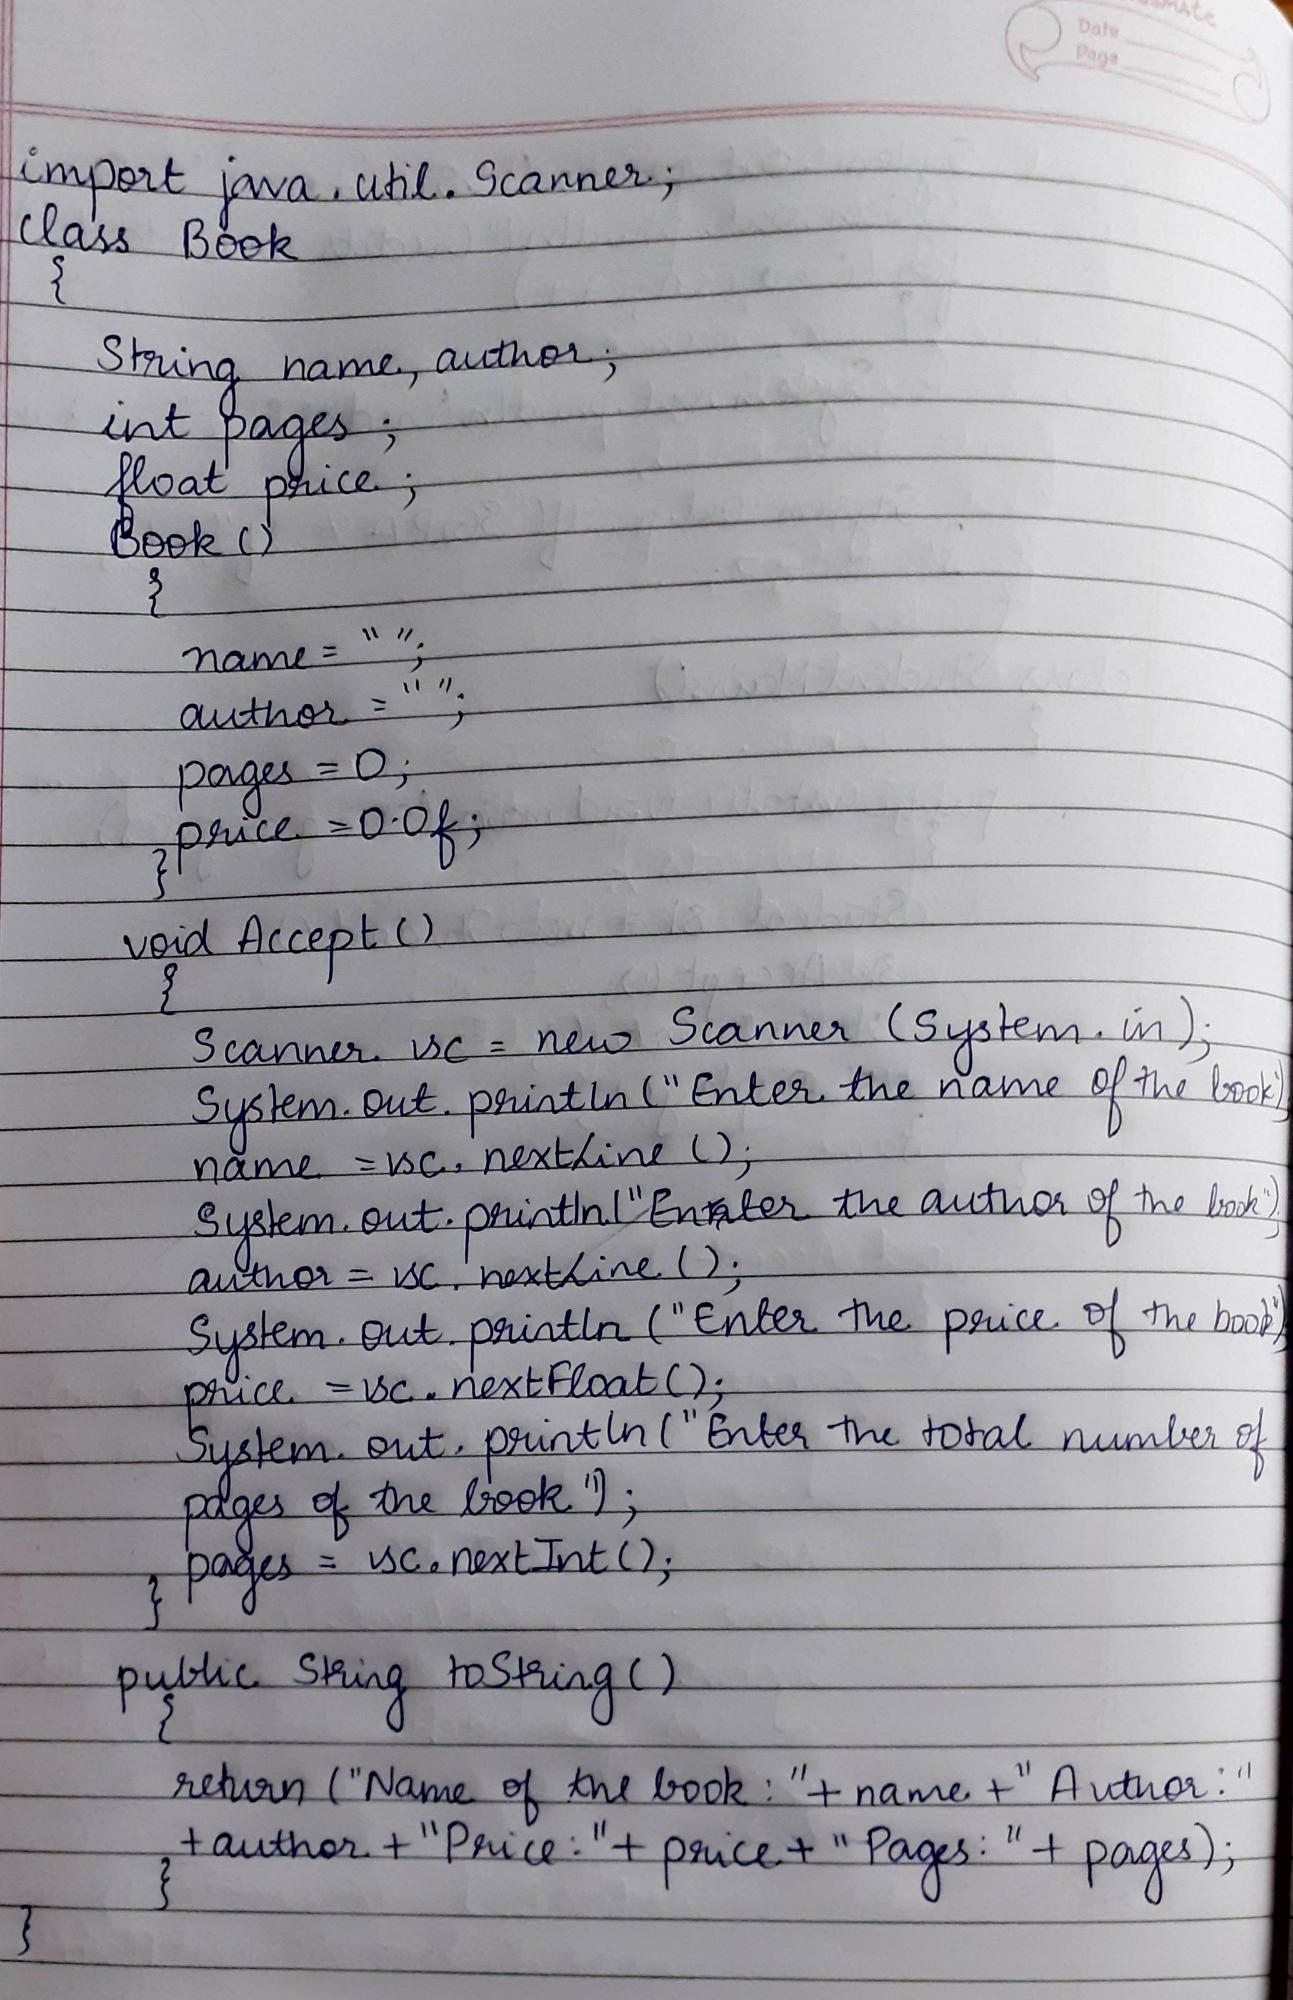 Date
Page
import java.util.Scanner;
class Book
{
String name, author;
int pages;
float price;
Book()
{
name = " ";
author = " ";
pages = 0;
price = 0.0f;
}
void Accept()
{
Scanner sc = new Scanner (System.in);
System.out.println("Enter the name of the book")
name = sc.nextLine();
System.out.println("Enter the author of the book");
author = sc.nextLine();
System.out.println("Enter the price of the book")
price = sc.nextFloat();
System.out.println("Enter the total number of
pages of the book");
pages = sc.nextInt();
}
public String toString()
{
return ("Name of the book : "+ name + " Author : "
+ author + "Price : " + price + " Pages : " + pages);
}
}